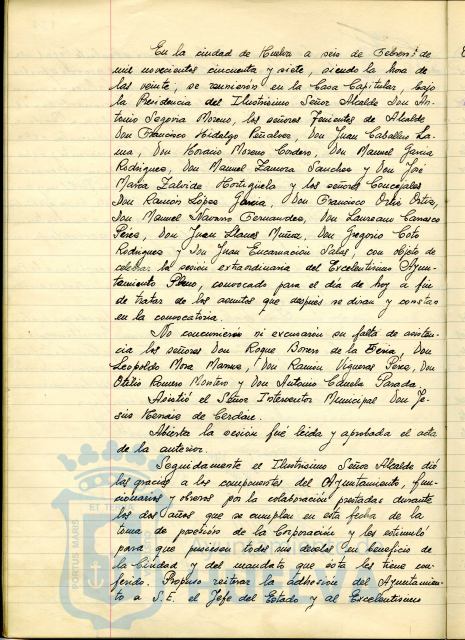 En la ciudad de Huelva a seis de Febrero de
mil novecientos cincuenta y siete, siendo la hora de
las veinte, se reunieron en la Casa Capitular, bajo
la Presidencia del Ilustrisimo Señor Alcalde Don An-
tonio Segovia Moreno, los señores Tenientes de Alcalde
Don Francisco Hidalgo Peñalver, Don Juan Caballos La-
Don Horacio Moreno Cordero, Don Manuel Garcia
Rodriguez, Don Manuel Zamora Sanchez y Don José
Maria Zalvide Hortiguela y los señores Concejales
Don Ramón López Garcia, Don Francisco Ortiz Ortiz,
Don Manuel Navarro Fernandez, Don Laureano Carrasco
Perez, Don Juan Llanes Muñoz, Don Gregorio Coto
Rodriguez y Don Juan Encarnación Salas, con objeto de
celebrar la sesión extraordinaria del Excelentisimo Ayun-
tamiento Pleno, convocado para el dia de hoy a fin
de tratar de los asuntos que después se diran y constan
en la convocatoria.
No concurrieron ni excusaron su falta de asisten-
cia los señores Don Roque Borrero de la Feria, Don
Leopoldo Mora Don Ramón Vigueras Perez, Don
Otilio Romero Montero y Don Antonio Canela Parada
Asistió el Señor Interventor Municipal Don Je-
sus Hernaiz de
Abierta la sesión fué leida y aprobada el acta
de la anterior.
Seguidamente el Ilustrisimo Señor Alcalde dió
las gracias a los componentes del Ayuntamiento, fun-
cionarios y obreros por la colaboración prestada durante
los dos años que se cumplen en esta fecha de la
toma de posesión de la Corporación y les estimuló
para que pusiesen todos sus desvelos en beneficio de
la Ciudad y del mandato que ésta les tiene con-
ferido. Propuso reiterar la adhesión del Ayuntamien-
to a S.E. el Jefe del Estado y al Excelentisimo
PORTUS MARIS